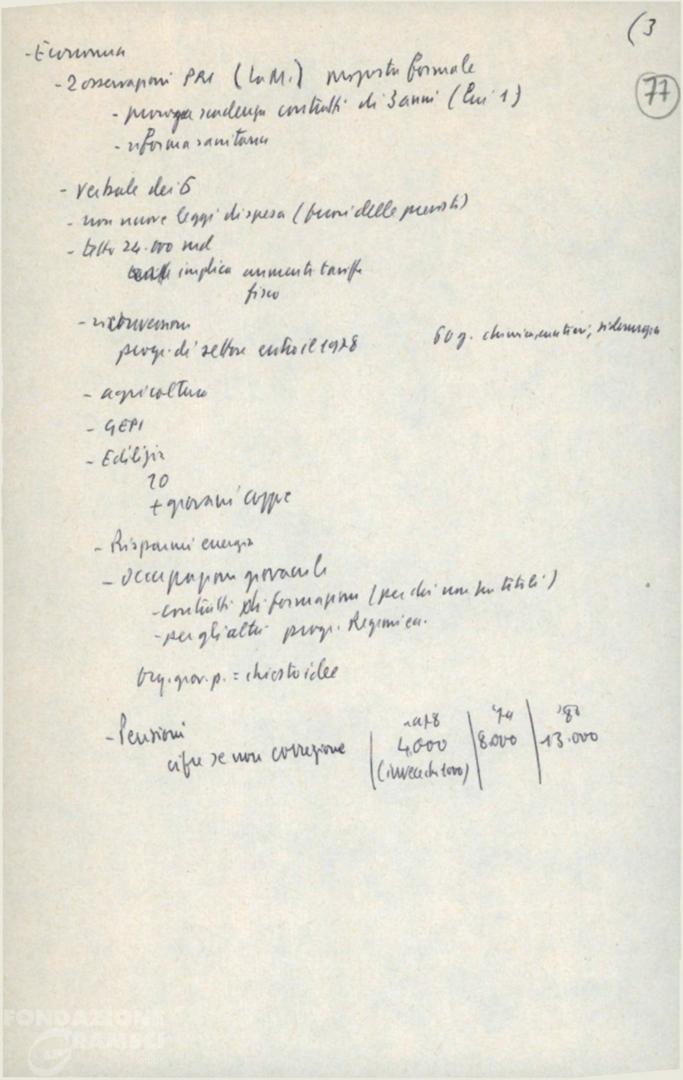 (3
77
- Economia
- 2 osservazioni PRI (La M.) proposta formale
- proroga scadenza contratti di 3 anni (Lui 1)
- riforma sanitaria
- verbale dei 6
- non nuove leggi di spesa (fuori delle previsti)
- tetto 24.000 md
implica aumenti tariffe
fisco
- riconversione
progr. di settore entro il 1978
60 g. chimica, siderurgia
- agricoltura
- GEPI
- Edilizia
20
+ giovani coppie
- Risparmi energia
- Occupazione giovanile
- contratti di formazione (per chi non ha titoli)
- per gli altri progr. Regioni ec.
Org. giov. p. = chiesto idee
- Pensioni
cifre se non correzione
1978 | '79 | '80
4.000 | 8.000 | 13.000
(invece di 1000)
FONDAZIONE
GRAMSCI